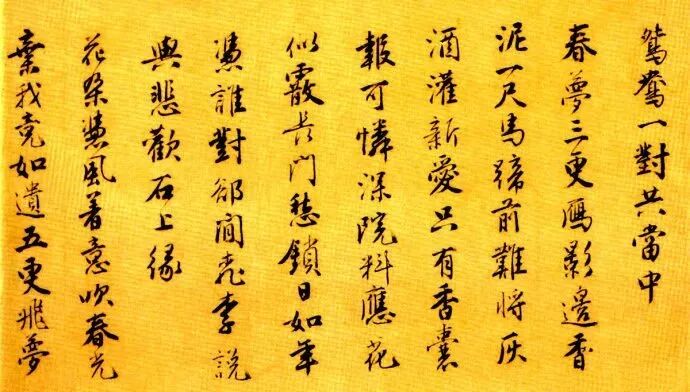 鴛鴦一對共當中
春夢三更鴈影邊香
泥一尺馬蹄前難將灰
酒灌新愛只有香囊
報可憐深院料應花
似霰長門愁鎖日如年
憑誰對卻閒桃李說
與悲歡石上緣
花朵憑風著意吹春光
棄我竟如遺五更飛夢